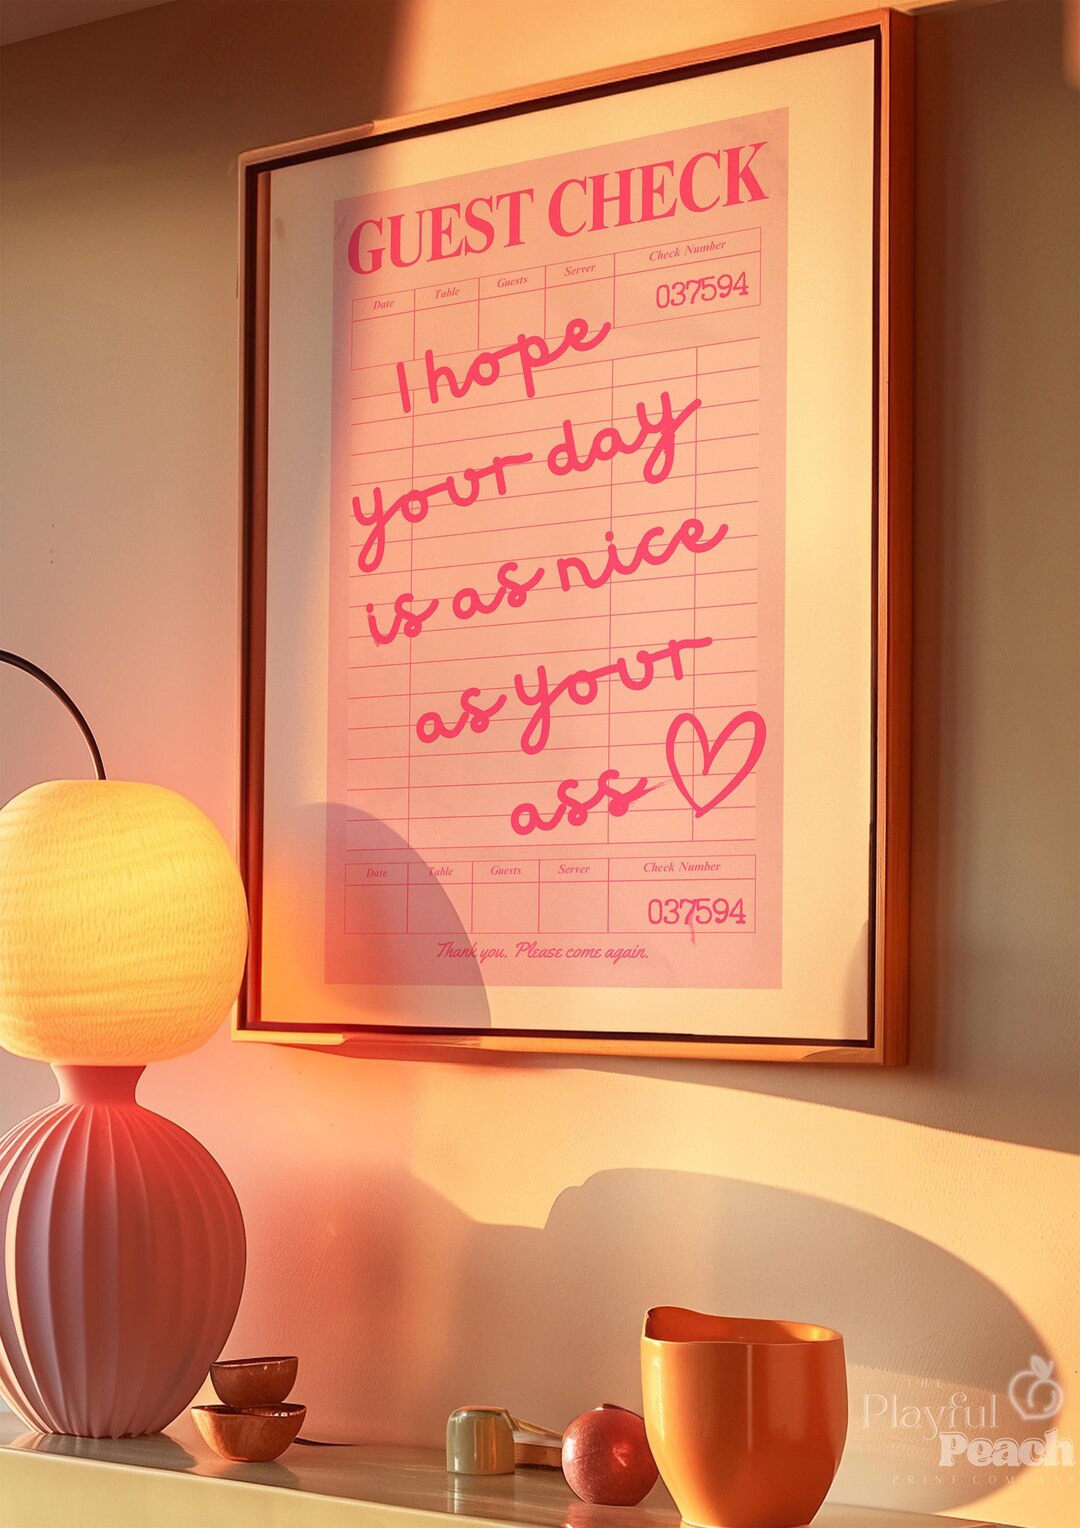 GUEST CHECK
Date Table Guests Server Check Number
037594
I hope
your day
is as nice
as your
ass
Date Table Guests Server Check Number
037594
Thank you. Please come again.
THE
Playful
Peach
PRINT COMPANY